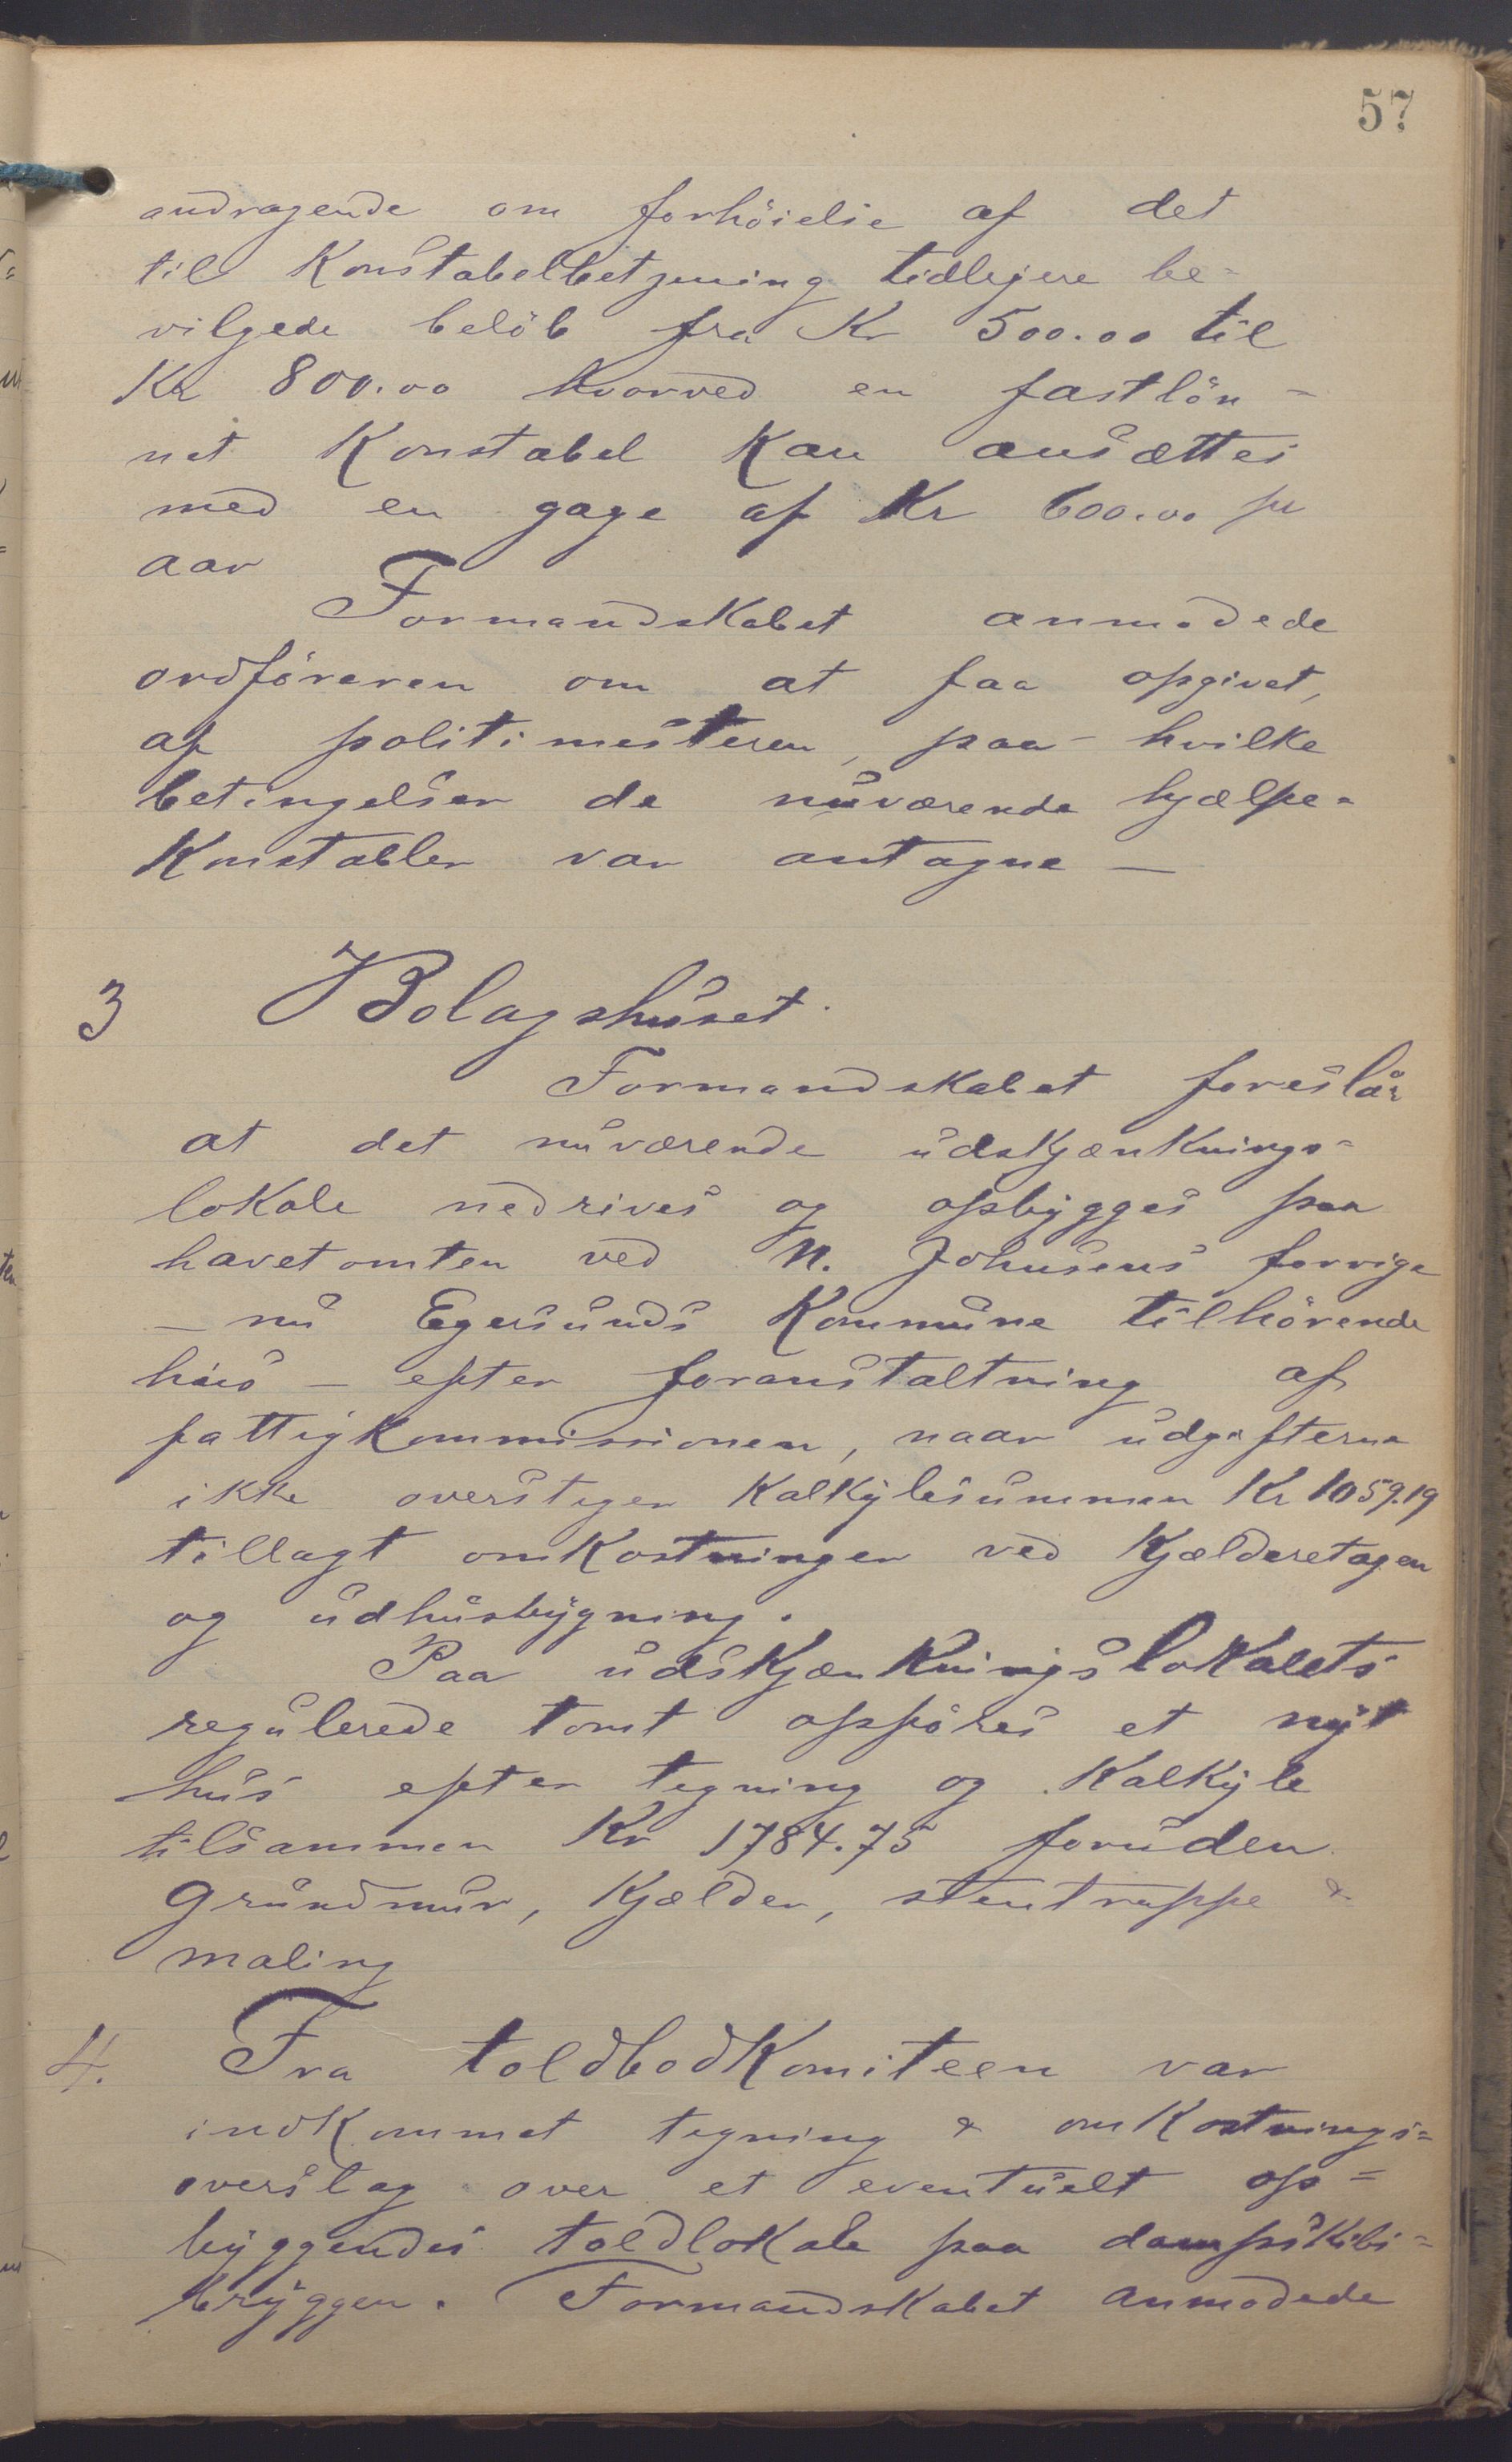 57
andragende om forhöielse af det
til Konstabelbetjening tidligere be-
vilgede belöb fra Kr 500.00 til
Kr 800.00 hvorved en fastlön-
net Konstabel Kan ansættes
med en gage af Kr 600.00 pr
aar
Formandskabet anmodede
ordföreren om at faa opgivet,
af politimesteren, paa hvilke
betingelser de nuværende hjælpe-
Konstabler var antagne —
3 Bolagshuset.
Formandskabet foreslår
at det nuværende udskjænknings-
lokale nedrives og opbygges paa
havetomten ved N. Johnsens forrige
— nu Egersunds Kommune tilhörende
hus — efter foranstaltning af
fattigkommissionen, naar udgifterne
ikke overstiger Kalkylesummen Kr 1059.19
tillagt omkostninger ved Kjælderetagen
og udhusbygning.
Paa udskjænkningslokalets
regulerede tomt opföres et nyt
hus efter tegning og Kalkyle
tilsammen Kr 1784.75 foruden
Grundmur, Kjælder, stentrappe &
maling
4. Fra toldbodkomiteen var
indkommet tegning & omkostnings-
overslag over et eventuelt op-
byggendes toldlokale paa dampskibs-
bryggen. Formandskabet anmodede